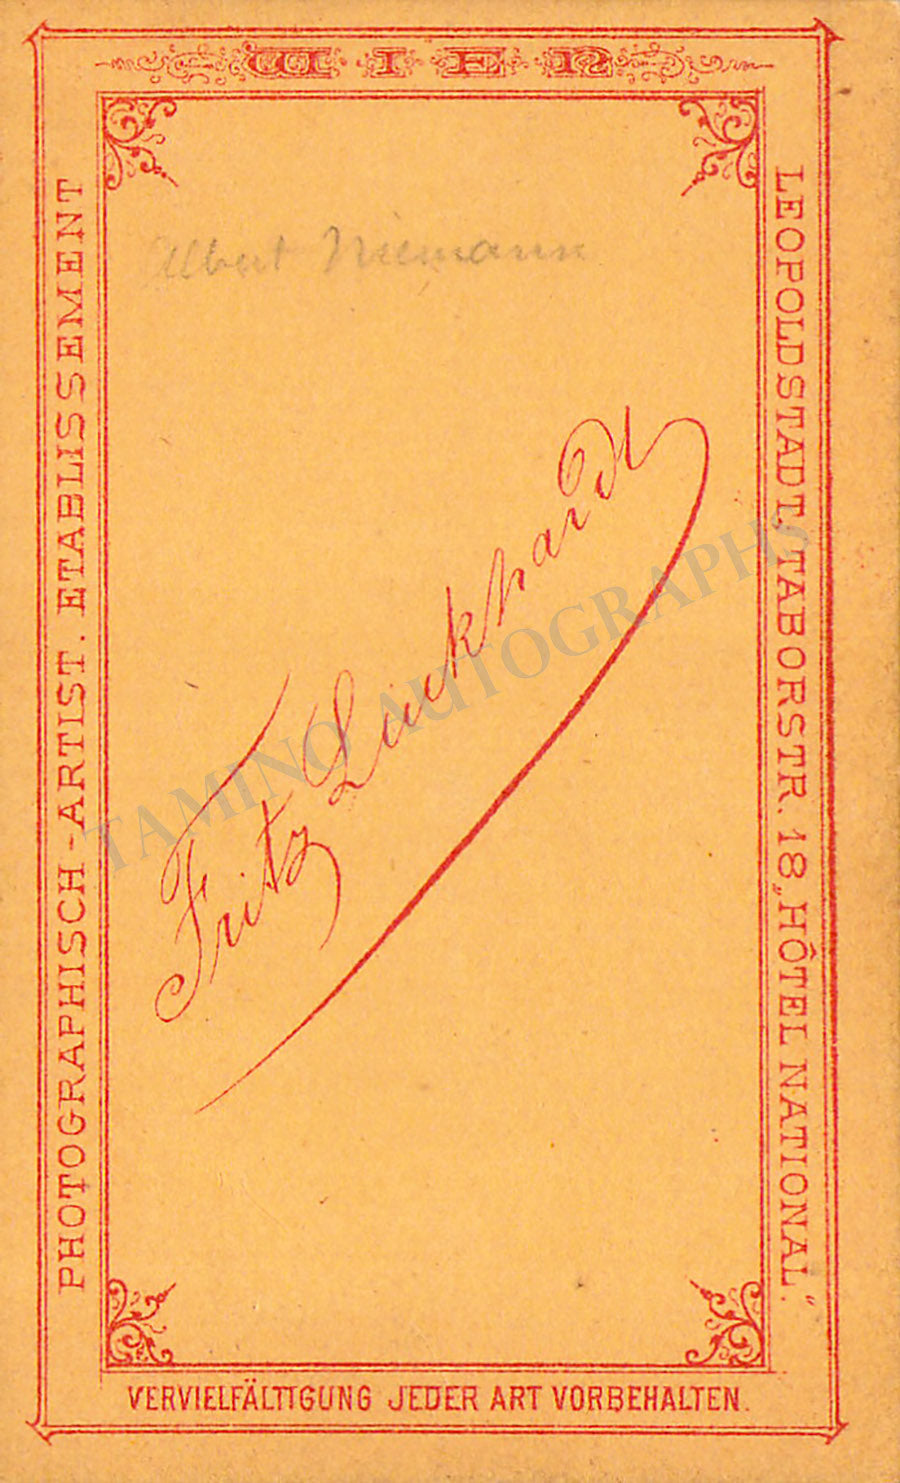 WIEN
Albert Niemann
PHOTOGRAPHISCH-ARTIST. ETABLISSEMENT
Fritz Luckhardt
LEOPOLDSTADT, TABORSTR. 18 „HÔTEL NATIONAL.“
VERVIELFÄLTIGUNG JEDER ART VORBEHALTEN.
TAMINO AUTOGRAPHS